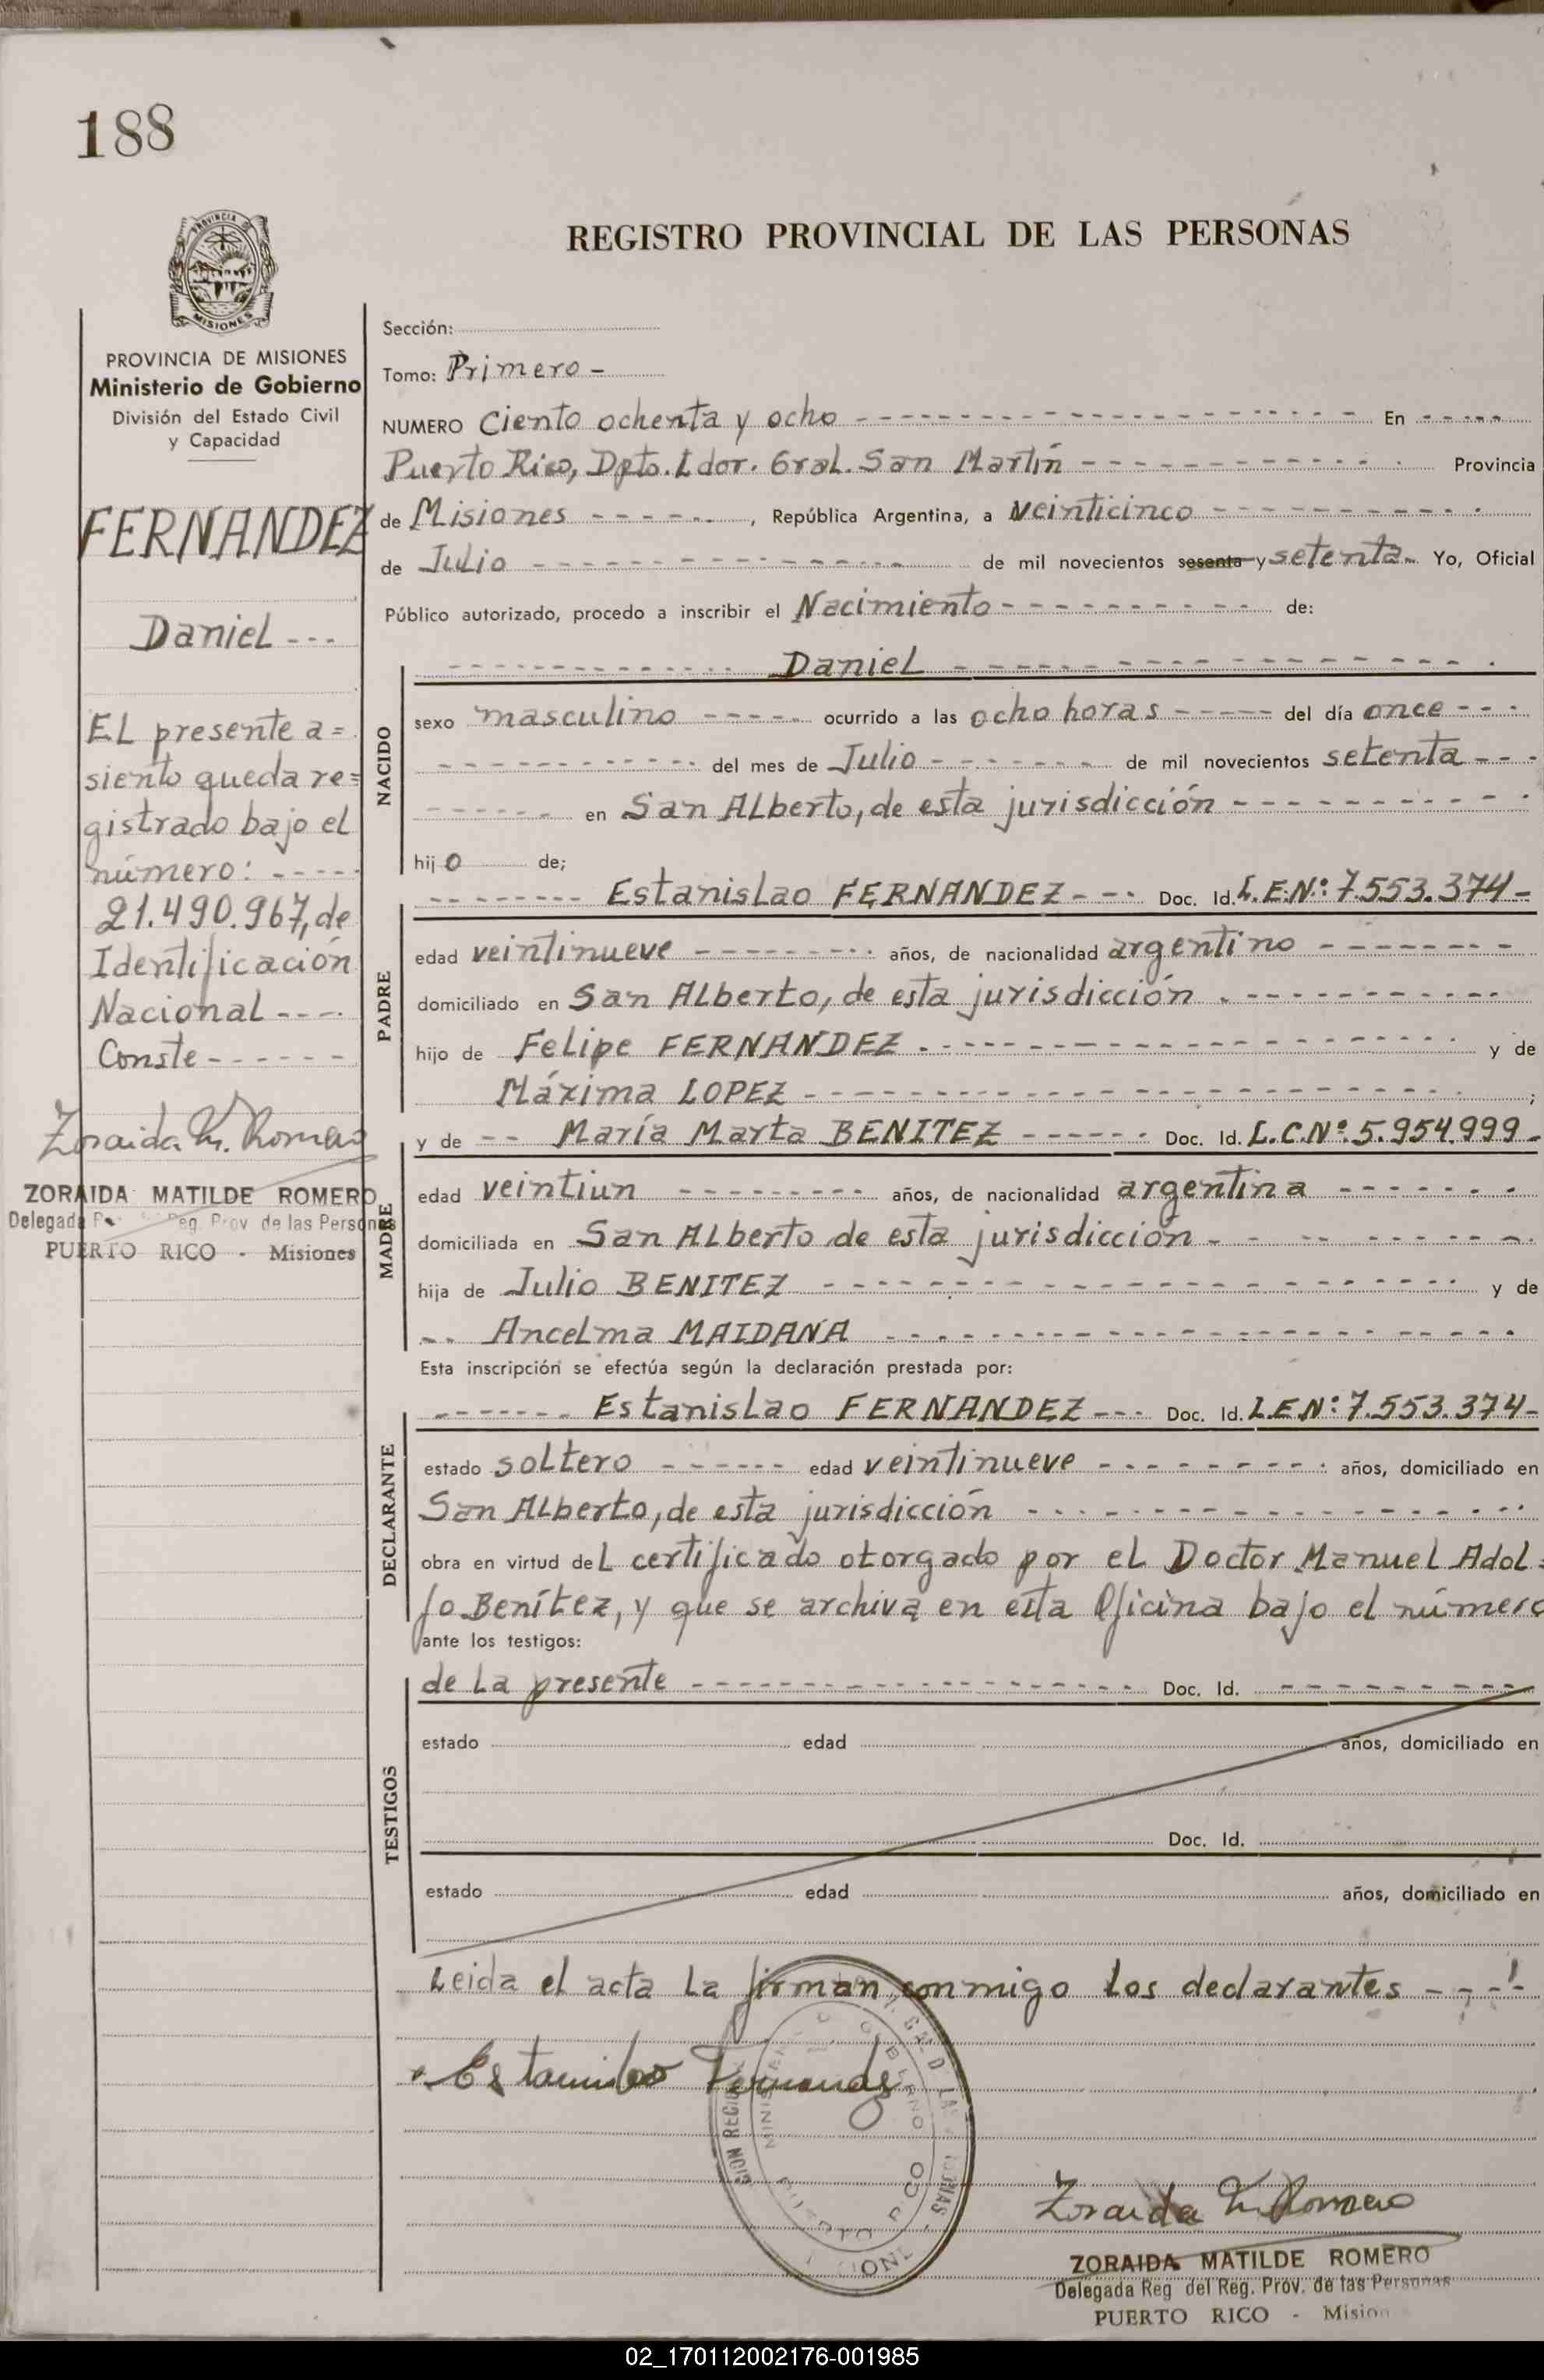 188
PROVINCIA
MISIONES
REGISTRO PROVINCIAL DE LAS PERSONAS
PROVINCIA DE MISIONES
Ministerio de Gobierno
División del Estado Civil
y Capacidad
FERNANDEZ
Daniel ---
EL presente a=
siento queda re=
gistrado bajo el
número: -----
21.490.967, de
Identificación
Nacional ----
Conste ------
Zoraida M. Romero
ZORAIDA MATILDE ROMERO
Delegada Reg. Prov. de las Personas
PUERTO RICO - Misiones
Sección:
Tomo: Primero -
NUMERO Ciento ochenta y ocho ---------- En -----
Puerto Rico, Dpto. Ldor. Gral. San Martín ---------- Provincia
de Misiones ------, República Argentina, a veinticinco ----------
de Julio ---------- de mil novecientos sesenta y setenta-. Yo, Oficial
Público autorizado, procedo a inscribir el Nacimiento ---------- de:
NACIDO
---------- Daniel ----------
sexo masculino ----- ocurrido a las ocho horas ----- del día once ---
---------- del mes de Julio ------- de mil novecientos setenta ---
----- en San ALberto, de esta jurisdicción ----------
hijo de;
PADRE
-------- Estanislao FERNANDEZ --- Doc. Id. L.E.Nº: 7.553.374-
edad veintinueve --------- años, de nacionalidad argentino -------
domiciliado en San ALberto, de esta jurisdicción ----------
hijo de Felipe FERNANDEZ ---------- y de
Máxima LOPEZ ---------- ;
MADRE
y de -- María Marta BENITEZ ------ Doc. Id. L.C.Nº: 5.954.999-
edad veintiun --------- años, de nacionalidad argentina -------
domiciliada en San ALberto, de esta jurisdicción ----------
hija de Julio BENITEZ ---------- y de
-- Ancelma MAIDANA ----------
Esta inscripción se efectúa según la declaración prestada por:
DECLARANTE
------- Estanislao FERNANDEZ --- Doc. Id. L.E.Nº: 7.553.374-
estado soltero ------ edad veintinueve --------- años, domiciliado en
San ALberto, de esta jurisdicción ----------
obra en virtud deL certificado otorgado por el Doctor Manuel Adol=
fo Benítez, y que se archiva en esta Oficina bajo el número
ante los testigos:
TESTIGOS
de La presente ---------- Doc. Id. --------
estado edad años, domiciliado en
Doc. Id.
estado edad años, domiciliado en
Leida el acta La firman conmigo los declarantes ----
Estanislao Fernandez
PUERTO RICO
Zoraida M. Romero
ZORAIDA MATILDE ROMERO
Delegada Reg del Reg. Prov. de las Personas
PUERTO RICO - Mision
02_170112002176-001985